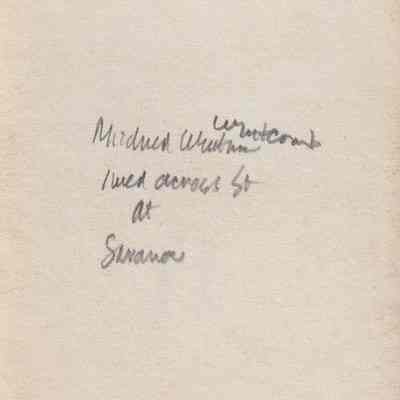 Mildred Whitcomb
lived across St
at
Saranac